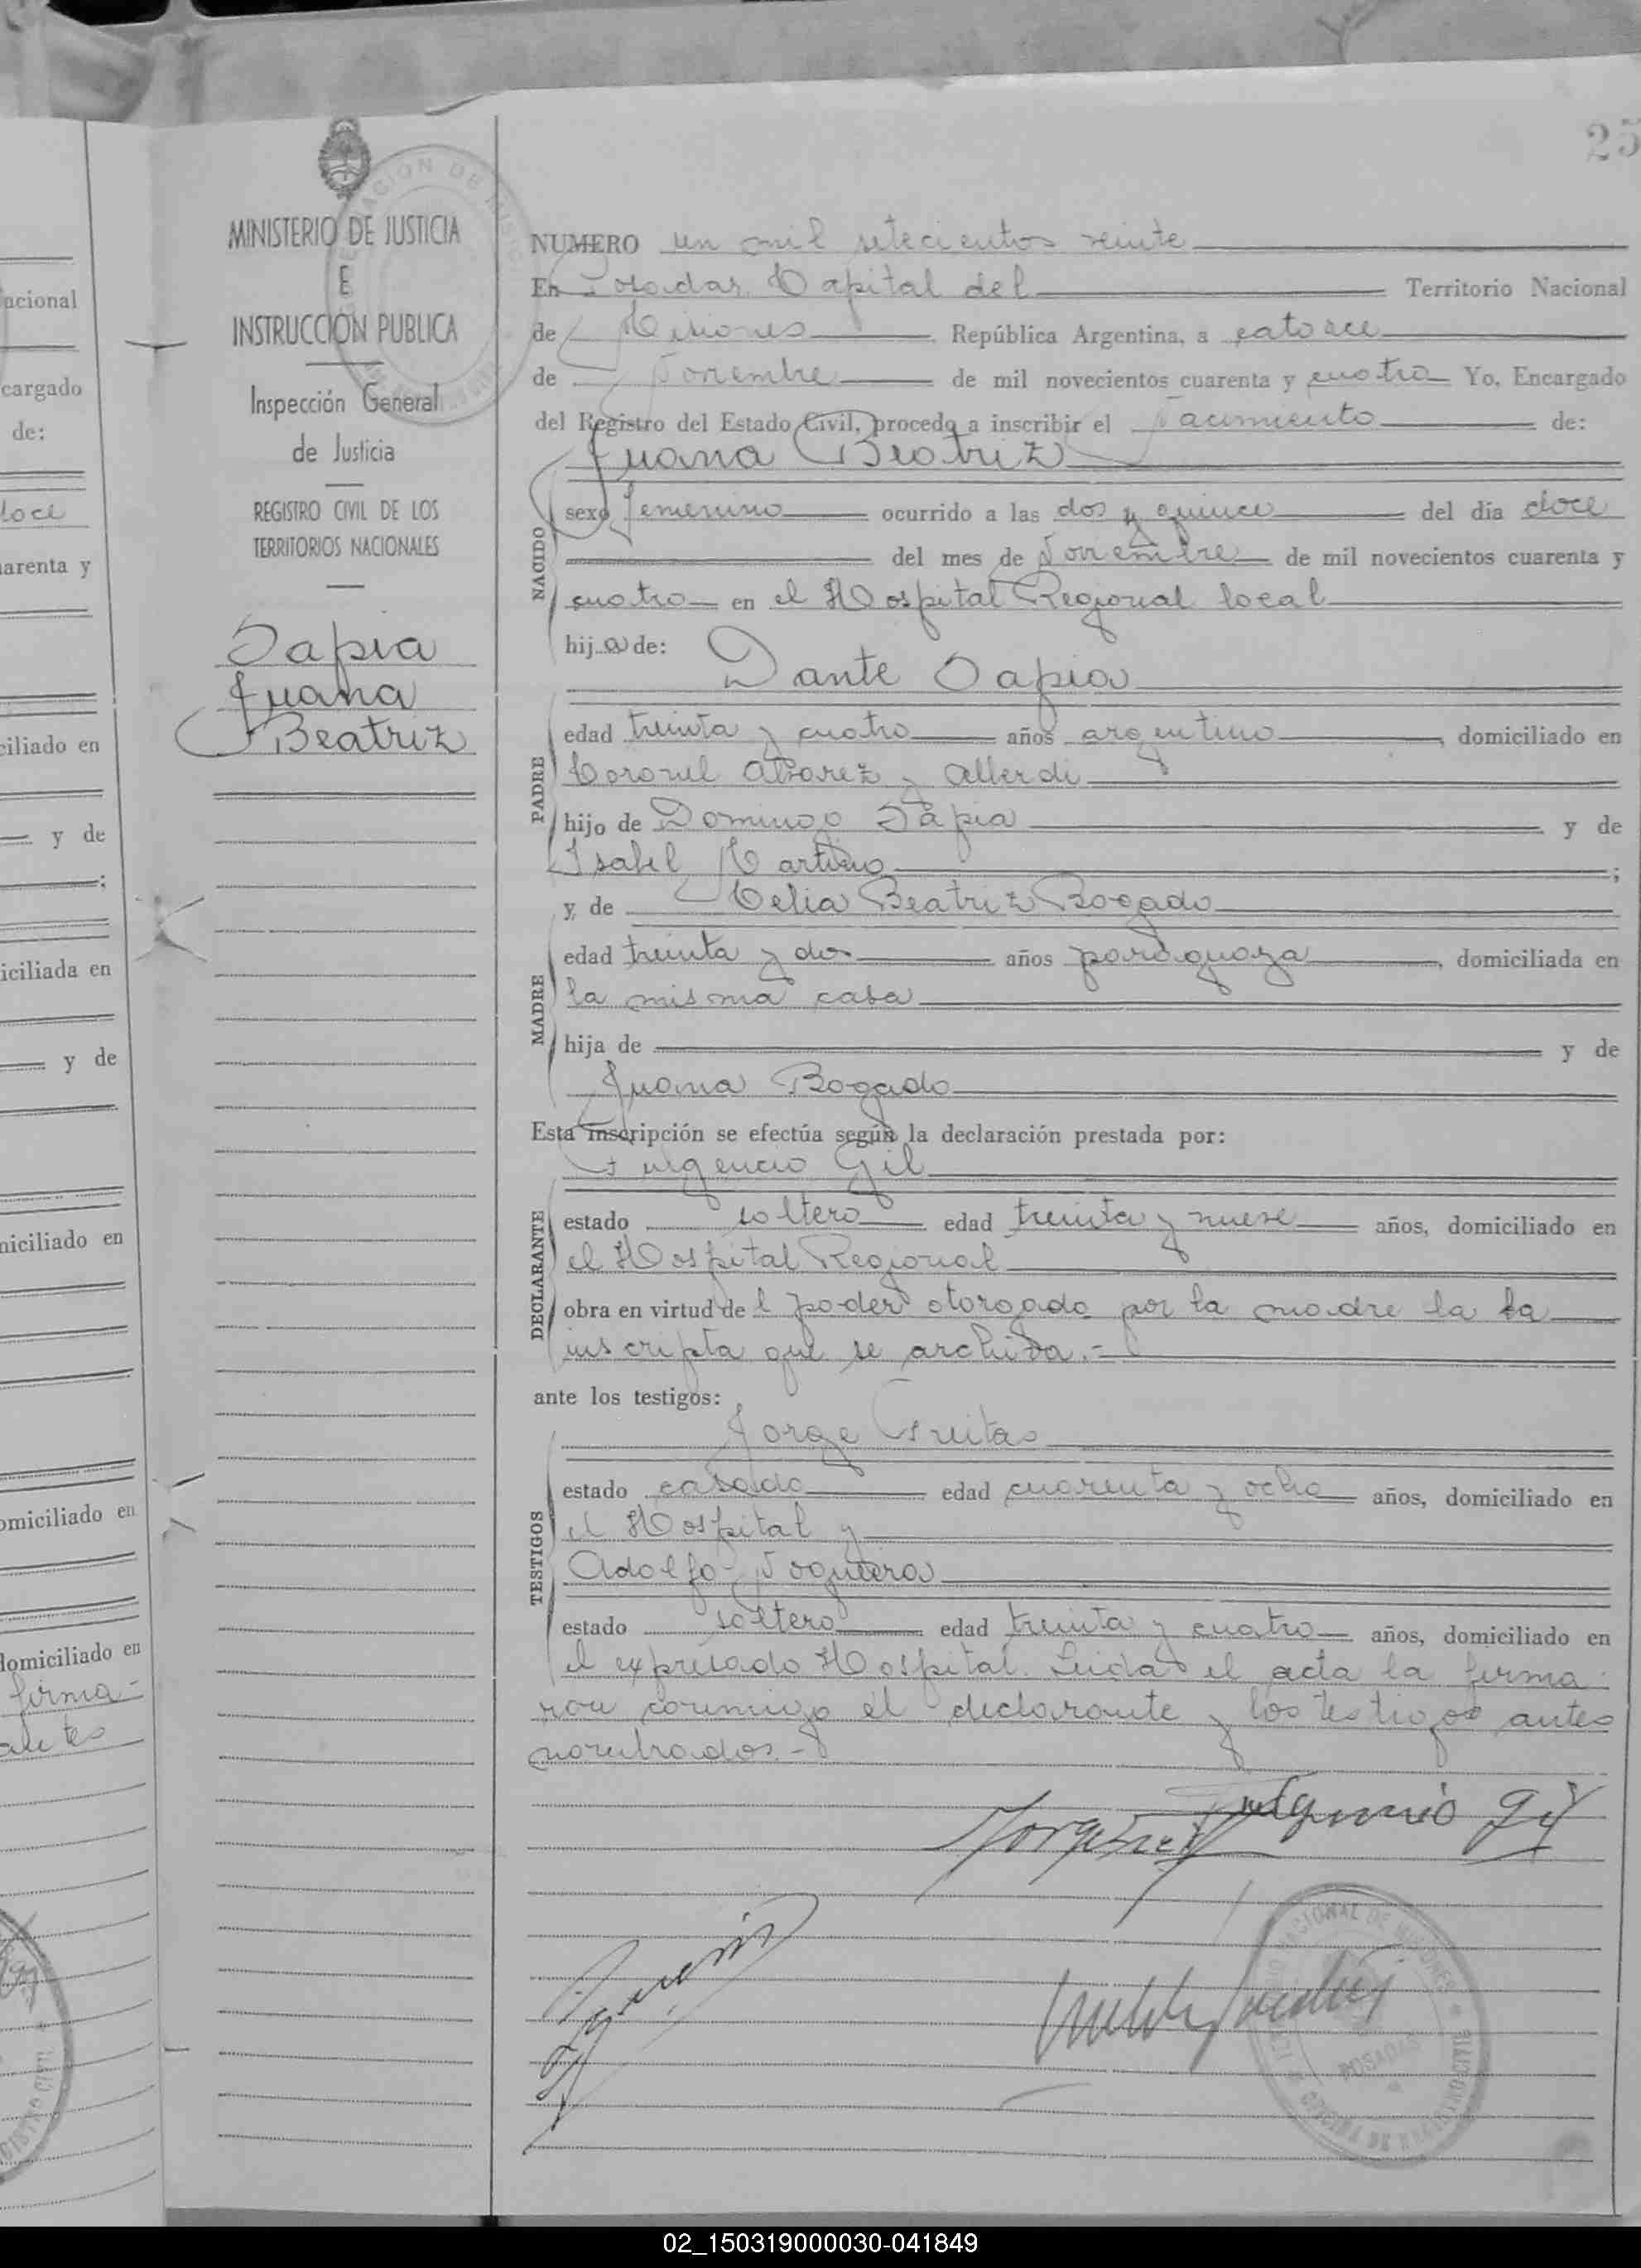 25
MINISTERIO DE JUSTICIA
E
INSTRUCCIÓN PUBLICA
Inspección General
de Justicia
REGISTRO CIVIL DE LOS
TERRITORIOS NACIONALES
Sapia
Juana
Beatriz
NUMERO un mil setecientos veinte
En Posadas Capital del Territorio Nacional
de Misiones República Argentina, a catorce
de Noviembre de mil novecientos cuarenta y cuatro Yo, Encargado
del Registro del Estado Civil, procedo a inscribir el Nacimiento de:
Juana Beatriz
NACIDO
sexo femenino ocurrido a las dos y quince del dia doce
del mes de Noviembre de mil novecientos cuarenta y
cuatro en el Hospital Regional local
hij a de:
Dante Sapia
PADRE
edad treinta y cuatro años argentino, domiciliado en
Coronel Alvarez y Alberdi
hijo de Domingo Sapia y de
Isabel Martino;
y de Celia Beatriz Bogado
MADRE
edad treinta y dos años paraguaya, domiciliada en
la misma casa
hija de y de
Juana Bogado
Esta inscripción se efectúa según la declaración prestada por:
Fulgencio Gil
DECLARANTE
estado soltero edad treinta y nueve años, domiciliado en
el Hospital Regional
obra en virtud de l poder otorgado por la madre la la
inscripta que se archiva.-
ante los testigos:
Jorge Freitas
TESTIGOS
estado casado edad cuarenta y ocho años, domiciliado en
el Hospital y
Adolfo Noguera
estado soltero edad treinta y cuatro años, domiciliado en
el expresado Hospital. Leida el acta la firma
ron conmigo el declarante y los testigos antes
nombrados.-
Fulgencio Gil
POSADAS
acional
cargado
de:
doce
arenta y
ciliado en
y de
iciliada en
y de
niciliado en
omiciliado en
domiciliado en
firma-
antes
02_150319000030-041849